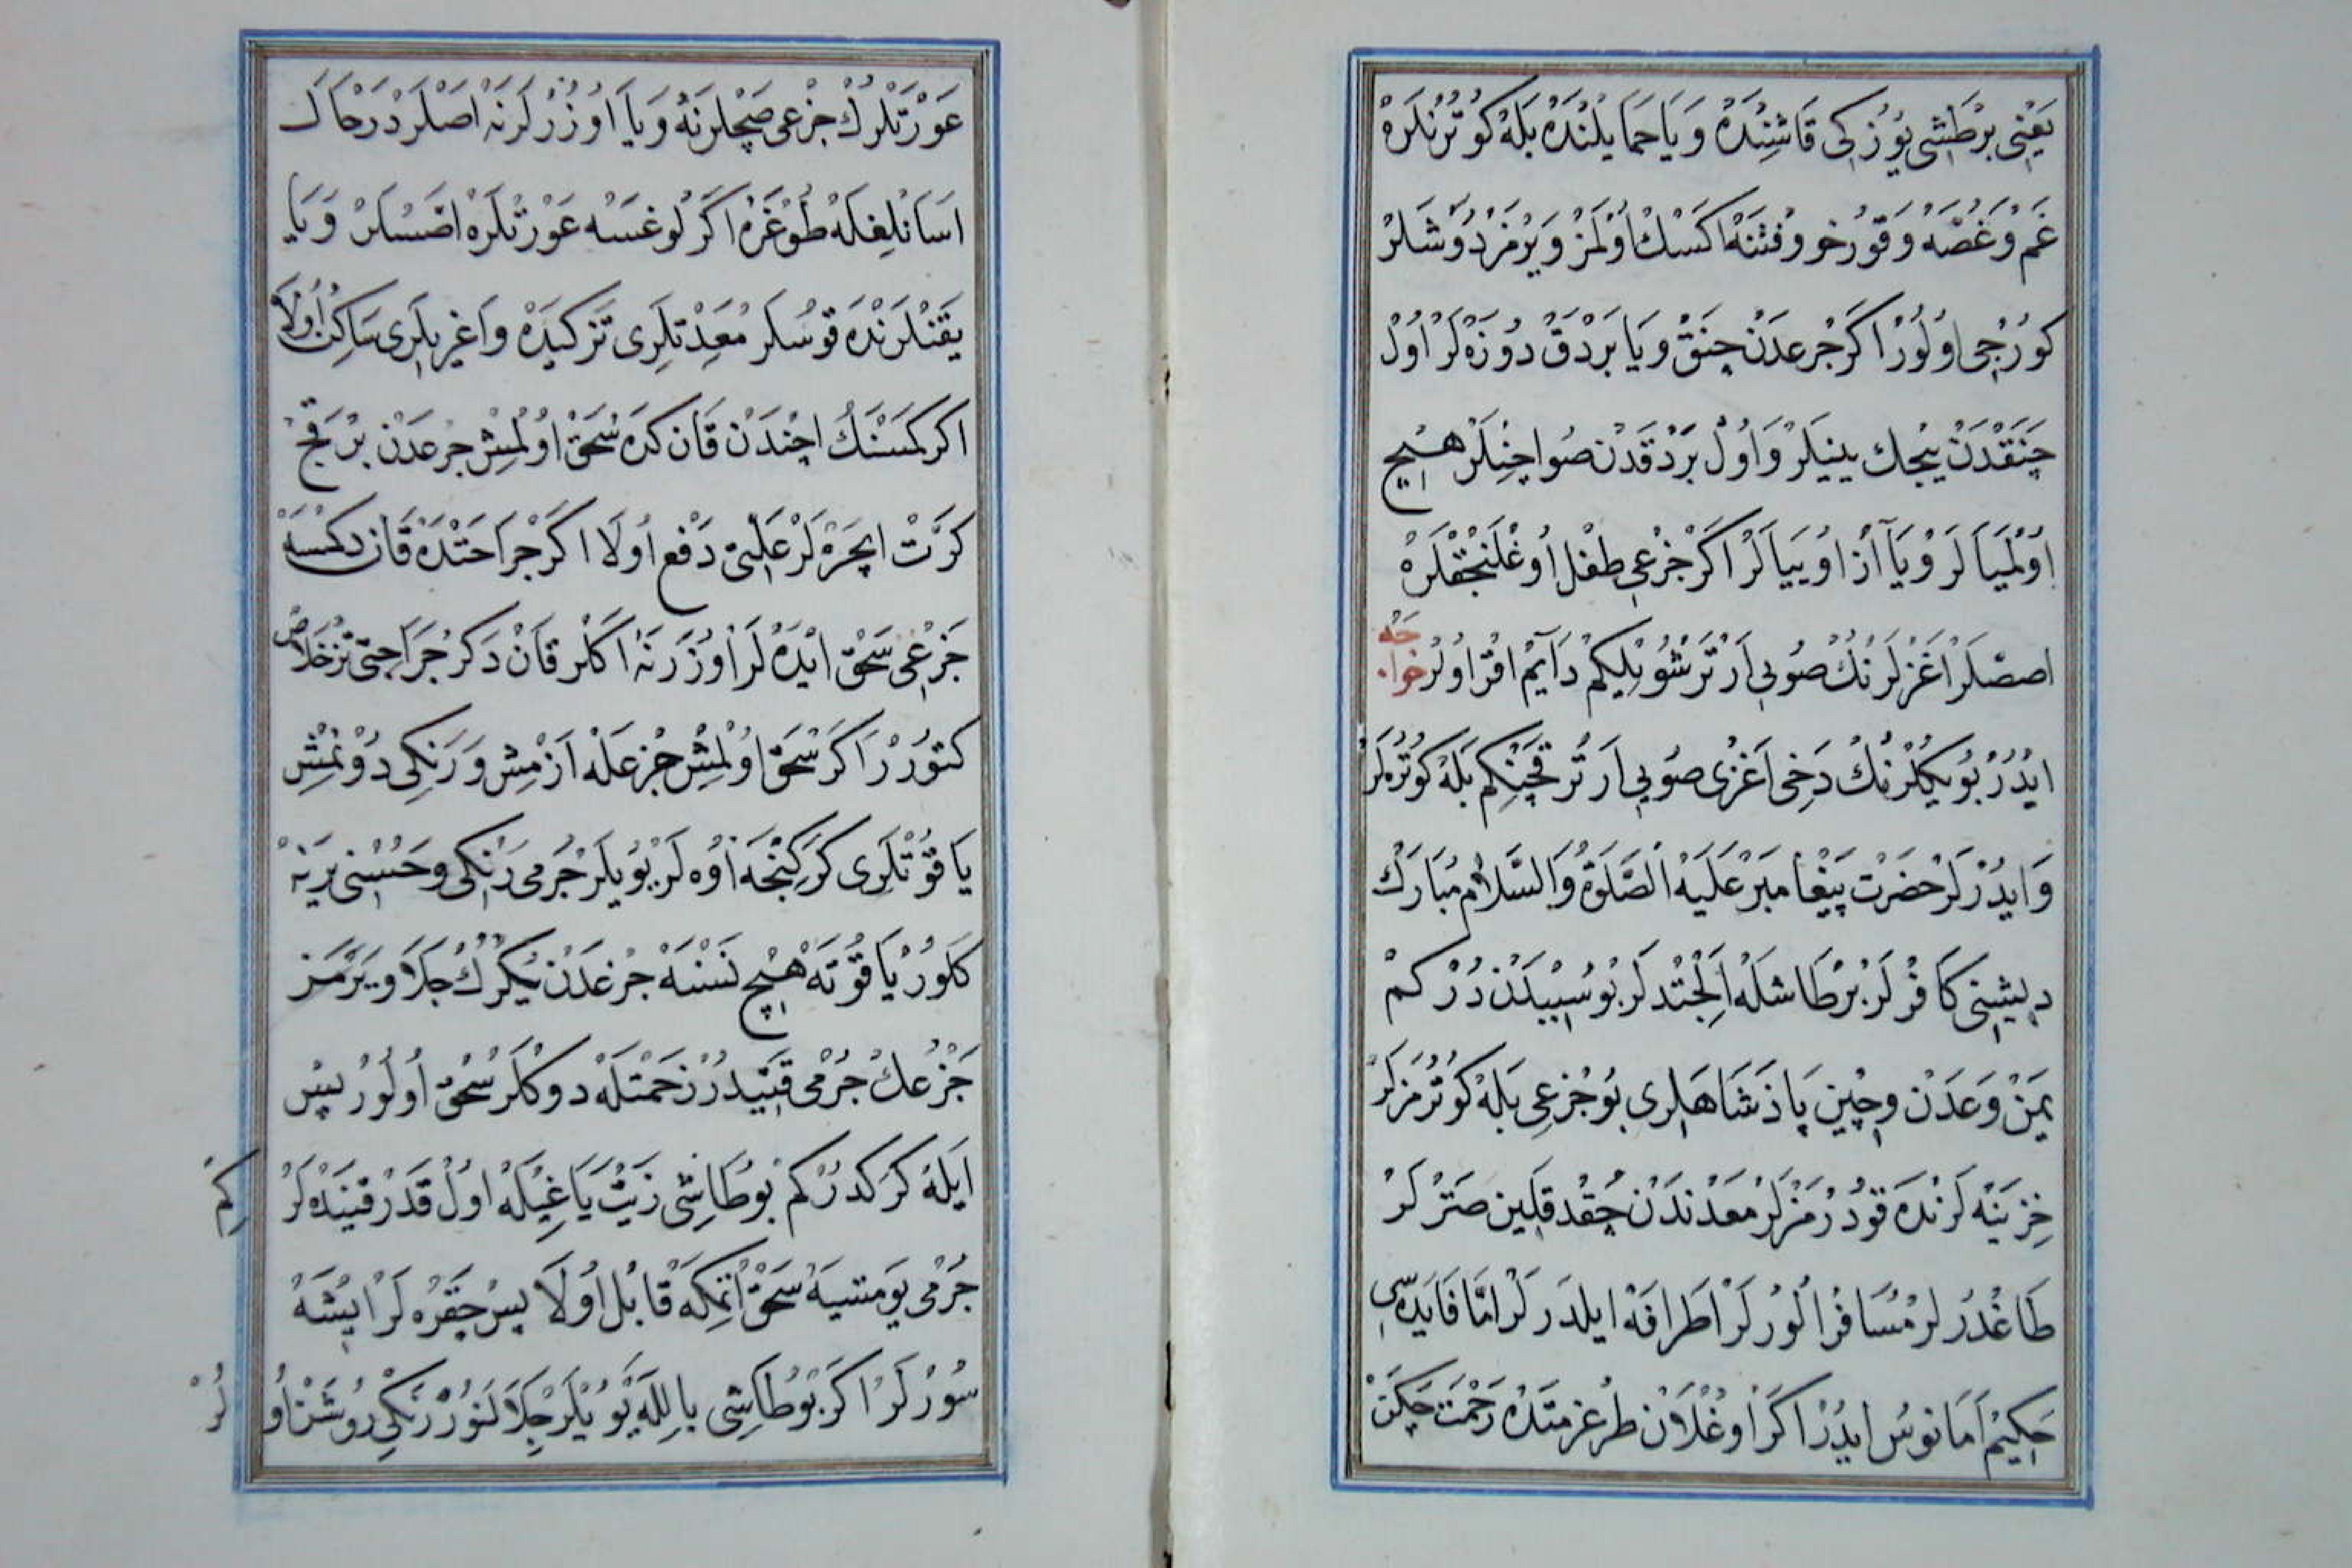 يَعْنِى بُرْطَشِى يُوزُكِى قَاشِنْدَهْ وَيَا حَمَايِلِنْدَهْ بِلَهْ كُوتُرَنْلَرَهْ
غَمْ وَغُصَّهْ وَقُورْخُو وَفِتْنَهْ اَكْسِكْ اُولْمَزْ وَيَرْمَزْ دُوشَلَرْ
كُورُجِى اُولُورْ اَكَرْ جَزْعدَنْ چَنَقْ وَيَا بَرْدَقْ دُوزَهْلَرْ اُولْ
چَنَقْدَنْ يِيجَكْ يِيَلَرْ وَاُولْ بَرْدَقْدَنْ صُو اِچِلَرْ هِيچْ
اُولْمَيَالَرْ وَيَا آزْ اُويُيَالَرْ اَكَرْ جَزْعِى طِفْلْ اُوغْلَنْجُقْلَرَهْ
اَصَّلَرْ اَغِزْلَرِنُكْ صُويِى اَرْتَرْ شُويْلَهكِمْ دَايِمْ اَقَرْ اُولُرْ
اَيْدُرْ بُويُكْلَرْنُكْ دَخِى اَغْزِى صُويِى اَرْتَرْ قَچَنْكِمْ بِلَهْ كُوتُرَهلَرْ
وَايْدُرْلَرْ حَضْرَتْ پَيْغَامْبَرْ عَلَيْهِ الصَّلَوةُ وَالسَّلَامْ مُبَارَكْ
دِيشِنِى كَافِرْلَرْ بُرْطَاشْلَهْ اِنْجِتْدِلَرْ بُوسَبَبْدَنْدُرْ كِمْ
يَمَنْ وَعَدَنْ وَچِينْ پَادْشَاهلَرِى بُوجَزْعِى بِلَهْ كُوتُرْمَزْلَرْ
خَزِينَهلَرِنْدَهْ قُودُرْمَزْلَرْ مَعْدَنِنْدَنْ چِقْدُقْلَيِنْ صَتَرْلَرْ
طَاغُدُرْلَرْ مُسَافِرْ اَلُورْلَرْ اَطْرَافَهْ اِيلَدُرْلَرْ اَمَّا فَايِدَهسِى
حَكِيمْ اَمَانُوسْ اَيْدُرْ اَكَرْ اُوغْلَانْ طُوغُرْمَقْدَهْ زَحْمَتْ چَكَنْ
عَوْرَتْلَرُكْ جَزْعِى صَچْلَرِنَهْ وَيَا اُوزُرْلَرِنَهْ اَصْلَرْ دَرْحَالْ
اَسَانْلِغِلَهْ طُوغُرَهْ اَكَرْ لُوغُسَهْ عَوْرَتْلَرَهْ اَصَّسَلَرْ وَيَا
يَقِنْلَرِنْدَهْ قُوسَلَرْ مِعْدَتْلَرِى تَزْ كِيدَهْ وَاَغْرِيلَرِى سَاكِنْ اُولَا
اَكَرْ كِمْسَنُكْ اِچِنْدَنْ قَانْ كَلَهْ سَحْقْ اُولْمِشْ جَزْعدَنْ بِرْ قَچْ
كَرَّتْ اِچُرَهْلَرْ عِلَّتِى دَفْعْ اُولَا اَكَرْ جَرَاحَتْدَهْ قَانْ دِكْمَسَهْ
جَزْعِى سَحْقْ اِيدَهْلَرْ اُوزَرِنَهْ اَكَلَرْ قَانْ دِكَرْ جَرَاحَتِى تِزْ خَلَاصْ
كَتُورُرْ اَكَرْ سَحْقْ اُولْمِشْ جَزْعلَهْ اَزْمِشْ وَرَنْكِى دُونْمِشْ
يَاقُوتْلَرِى كَرَكِنْجَهْ اُوهلَرْ بُويْلَرْ جُرْمِى رَنْكِى وَحُسْنِى يَرِينَهْ
كَلُورْ يَاقُوتَهْ هِيچْ نَسْنَهْ جَزْعدَنْ يِكْرَكْ جَلَا وِيرْمَزْ
جَزْعكْ جُرْمِى قَتِيدُرْ زَحْمَتْلَهْ دُوكُلَرْ سَحْقْ اُولُورْ پَسْ
اَيْلَهْ كَرَكْدُرْكِمْ بُوطَاشِى زَيْتْ يَاغِيلَهْ اُولْ قَدَرْ قَيْنَدَهْلَرْ كِمْ
جُرْمِى يُومْشَيَهْ سَحْقْ اِتْمَكَهْ قَابِلْ اُولَا پَسْ چِقَرَهْلَرْ اِيشَهْ
سُورُرْلَرْ اَكَرْ بُوطَاشِى بَالِلَهْ بُويْلَرْ جَلَالَنُورْ رَنْكِى رُوشَنْ اُولُرْ